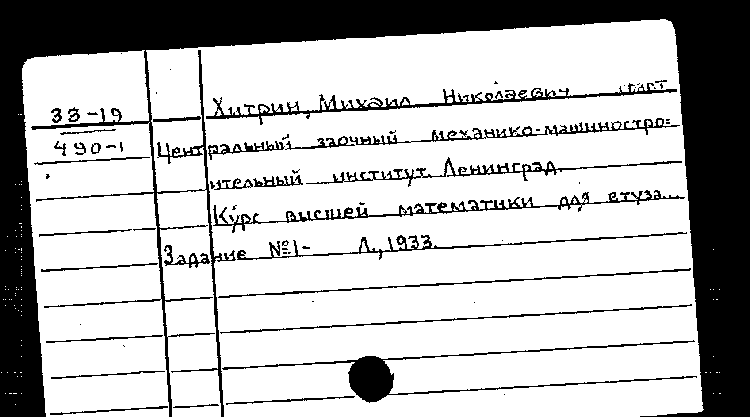 33-19 Хитрин, Михаил Николаевич
490-1 Центральный заочный механико-машиностро-
ительный институт. Ленинград.
Курс высшей математики для втуза...
Задание №1- Л., 1933.